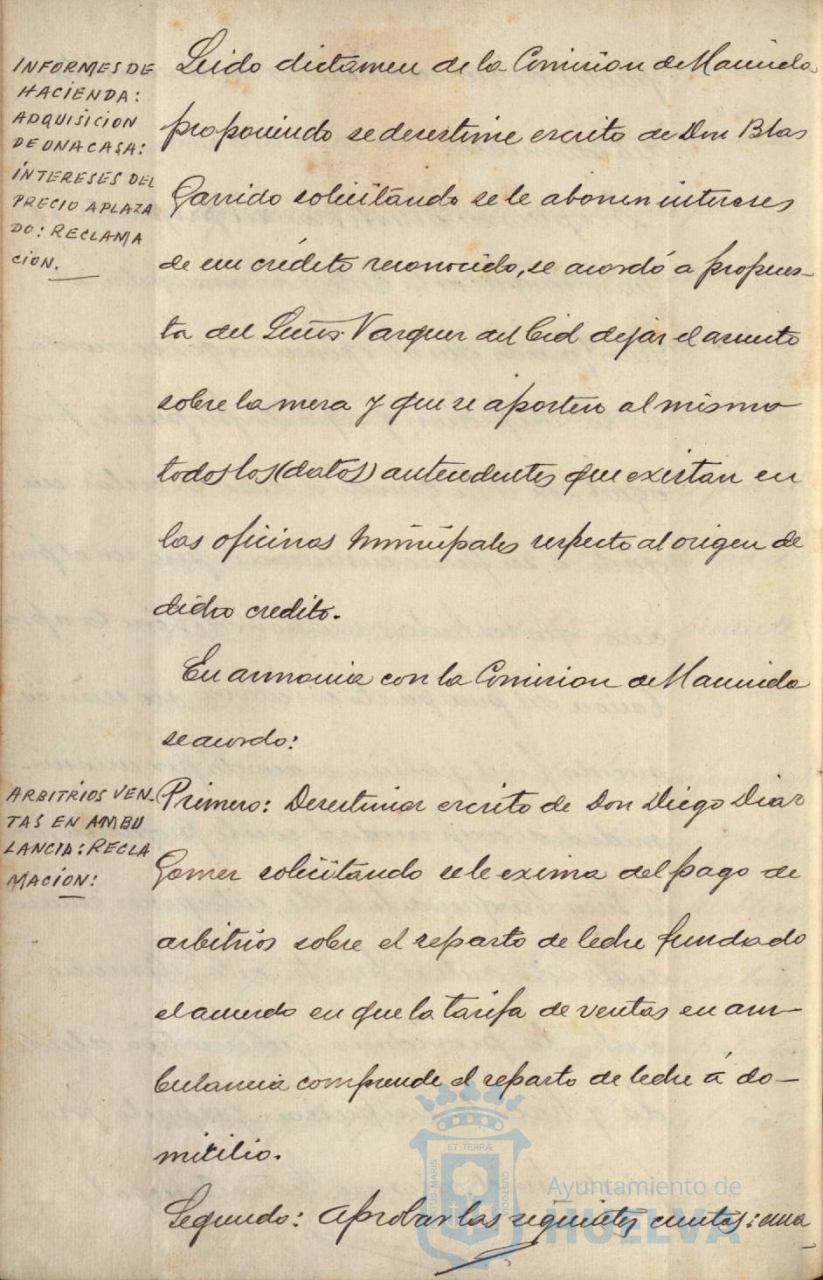 INFORMES DE
HACIENDA:
ADQUISICION
DE UNA CASA:
INTERESES DEL
PRECIO APLAZA
DO: RECLAMA
CION.
Leido dictamen de la Comision de Hacienda
proponiendo se desestime escrito de Don Blas
Garrido solicitando se le abonen intereses
de un crédito reconocido, se acordó a propues-
ta del Señor Vazquez del Cid dejar el asunto
sobre la mesa y que se aporten al mismo
todos los (datos) antecedentes que existan en
las oficinas Municipales respecto al origen de
dicho credito.
En armonia con la Comision de Hacienda
se acordo:
ARBITRIOS VEN-
TAS EN AMBU
LANCIA: RECLA
MACIÓN:
Primero: Desestimar escrito de Don Diego Diaz
Gomez solicitando se le exima del pago de
arbitrios sobre el reparto de leche fundado
el acuerdo en que la tarifa de ventas en am-
bulancia comprende el reparto de leche á do-
micilio.
Segundo: Aprobar las siguientes cuentas: una
ET TERRÆ
Ayuntamiento de
HUELVA